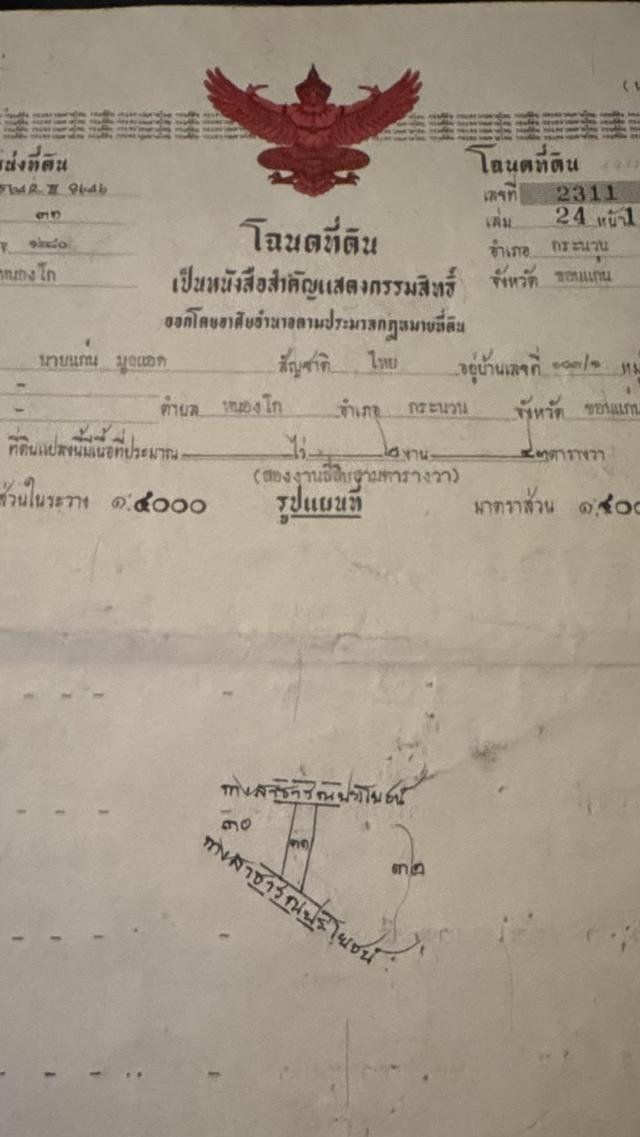 โฉนดที่ดิน
เลขที่ 2311
เล่ม 24 หน้า 1
อำเภอ กระนวน
จังหวัด ขอนแก่น
ที่ดิน
๓๑
๑๒๘๐
หนองโก
โฉนดที่ดิน
เป็นหนังสือสำคัญแสดงกรรมสิทธิ์
ออกโดยอาศัยอำนาจตามประมวลกฎหมายที่ดิน
นายแก่น สัญชาติ ไทย อยู่บ้านเลขที่ ๑๐๓/๑
ตำบล หนองโก อำเภอ กระนวน จังหวัด ขอนแก่น
ที่ดินแปลงนี้มีเนื้อที่ประมาณ ไร่ ๒ งาน ๔๓ ตารางวา
(สองงานสี่สิบสามตารางวา)
ส่วนในระวาง ๑:๔๐๐๐ รูปแผนที่ มาตราส่วน
ทางสาธารณประโยชน์
๓๐
๓๑
๓๒
ทางสาธารณประโยชน์